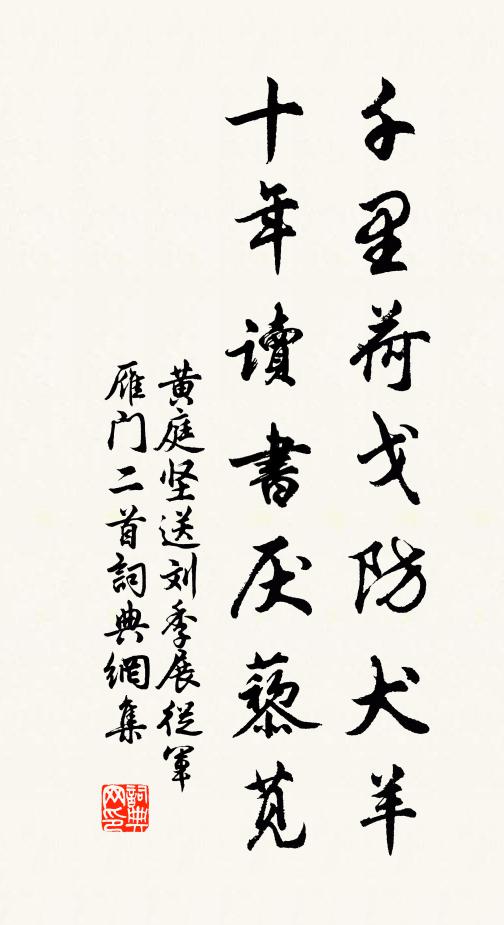 千里荷戈防犬羊
十年讀書厌藜莧
黄庭坚送刘季展從軍
雁门二首詞典網集
詞典
网印